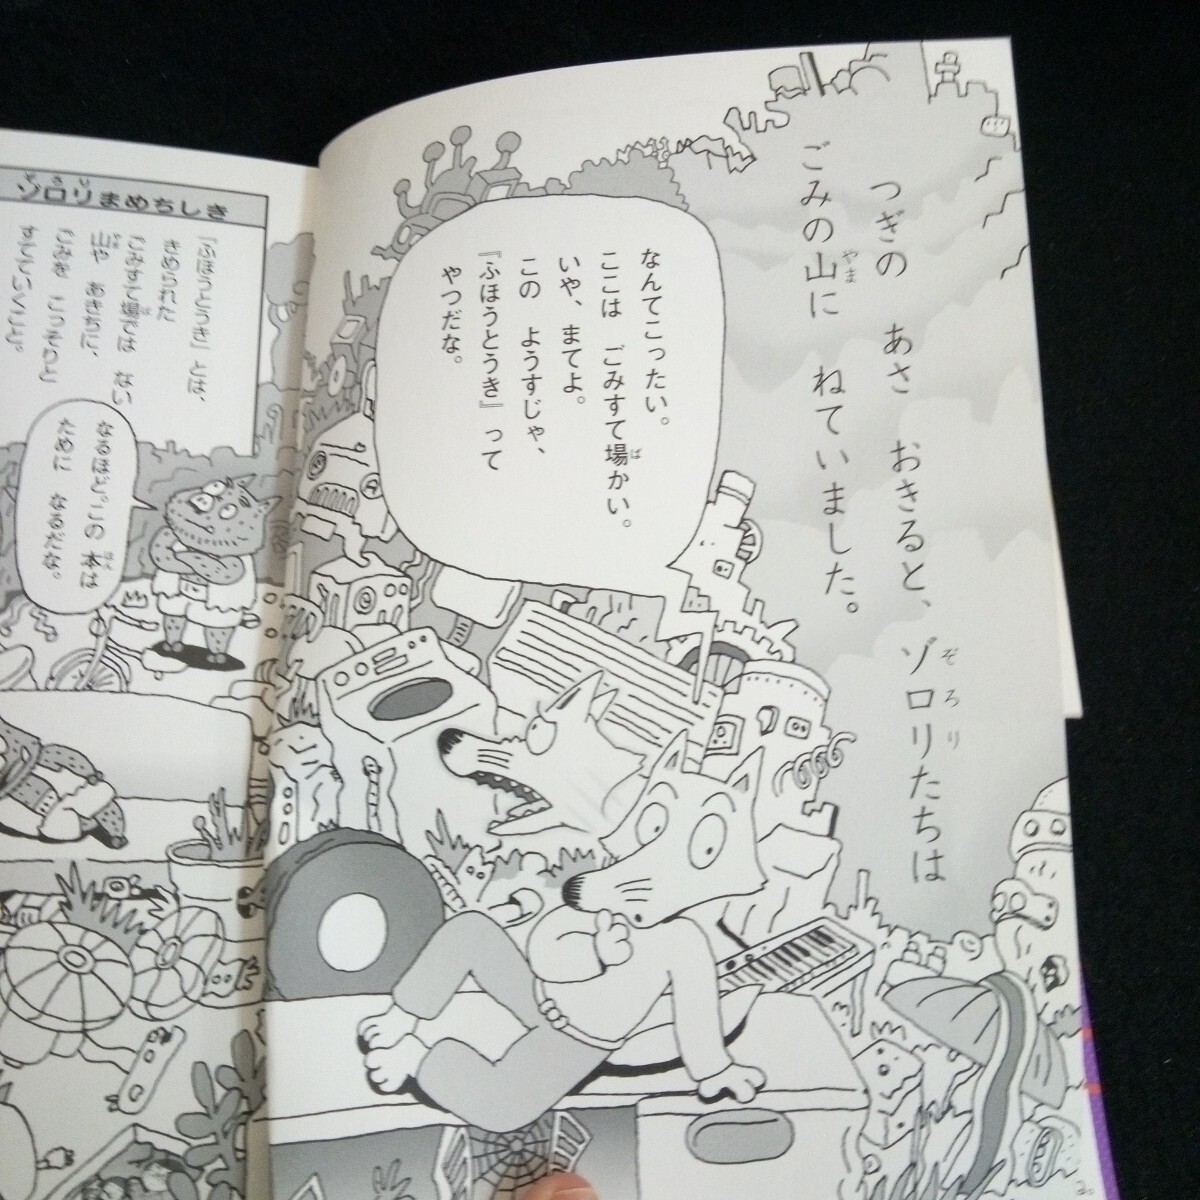 つぎの あさ おきると、ゾロリたちは
ぞろり
ごみの山に ねていました。
やま
なんてこったい。
ここは ごみすて場かい。
ば
いや、まてよ。
この ようすじゃ、
『ふほうとうき』って
やつだな。
ゾロリまめちしき
ぞろり
『ふほうとうき』とは、
きめられた
ごみすて場では ない
ば
山や あきちに、
やま
ごみを こっそりと
すてていくこと。
なるほど。この 本は
ほん
ために なるだな。